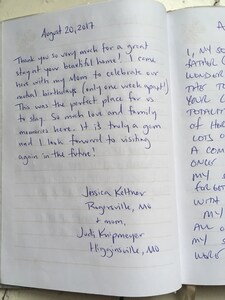 August 20, 2017
Thank you so very much for a great
stay at your beautiful home! I came
here with my mom to celebrate our
mutual birthdays (only one week apart!)
This was the perfect place for us
to stay. So much love and family
memories here. It is truly a gem
and I look forward to visiting
again in the future!
Jessica Keltner
Rogersville, MO
+ mom,
Judi Knipmeyer
Higginsville, MO
I, MY
FATHER
WONDER
THE
YOUR
OF
LOTS
A COM
ONCE
MY
FORGET
WITH
MY
AN
MY
WERE